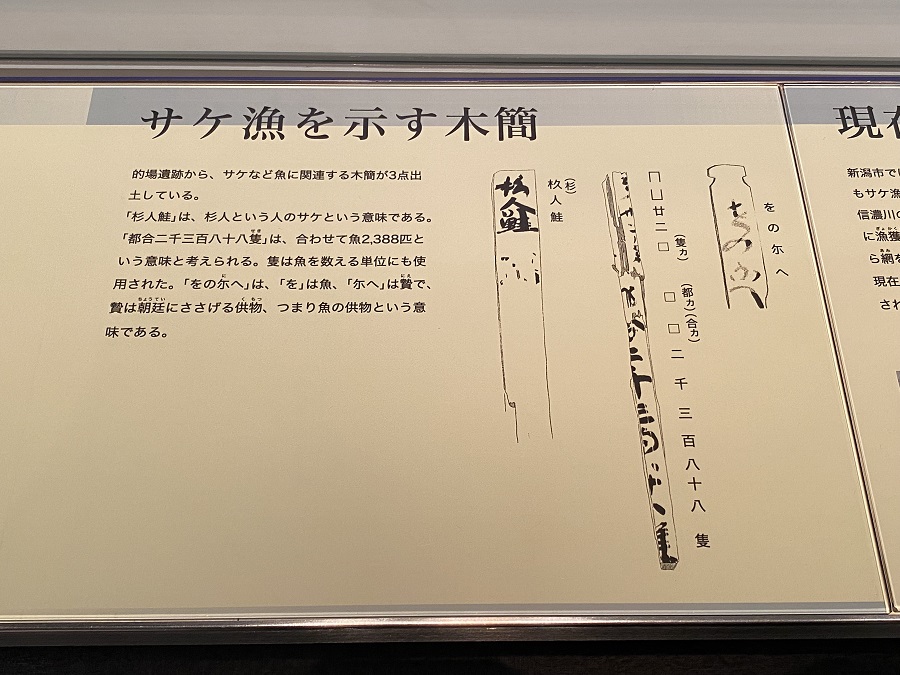 サケ漁を示す木簡
的場遺跡から、サケなど魚に関連する木簡が3点出
土している。
「杉人鮭」は、杉人という人のサケという意味である。
「都合二千三百八十八隻」は、合わせて魚2,388匹と
いう意味と考えられる。隻は魚を数える単位にも使
用された。「をの尓へ」は、「を」は魚、「尓へ」は贄で、
贄は朝廷にささげる供物、つまり魚の供物という意
味である。
をの尓へ
廿二□(隻カ)□□(都カ)(合カ)二千三百八十八隻
杁(杉)人鮭
現在
新潟市で
もサケ漁
信濃川の
に漁獲
ら網を
現在
され